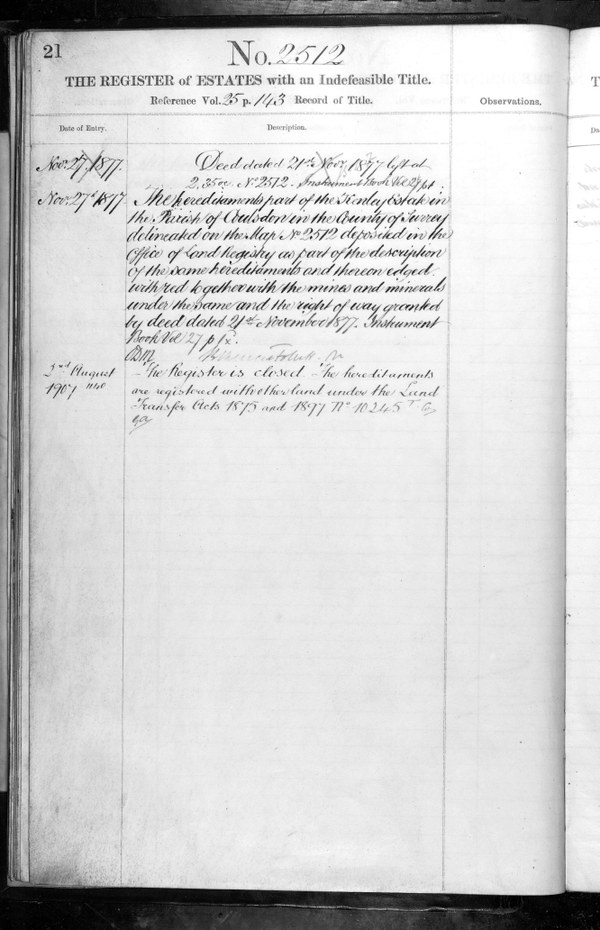 21
No. 2512
THE REGISTER of ESTATES with an Indefeasible Title.
Reference Vol. 25 p. 143 Record of Title.
Observations.
Date of Entry.
Description.
Novr. 27. 1877.
Deed dated 21st Novr. 1877 left at
2.35 No. 2512. Instrument Book Vol 27 p1
Novr. 27th 1877.
The hereditaments part of the Kenley Estate in
the Parish of Coulsdon in the County of Surrey
delineated on the Map No. 2512 deposited in the
Office of Land Registry as part of the description
of the same hereditaments and thereon edged
with red together with the mines and minerals
under the same and the right of way granted
by deed dated 21st November 1877. Instrument
Book Vol 27 p
2nd August
1907
The Register is closed. The hereditaments
are registered with other land under the Land
Transfer Acts 1875 and 1897 No. 10245